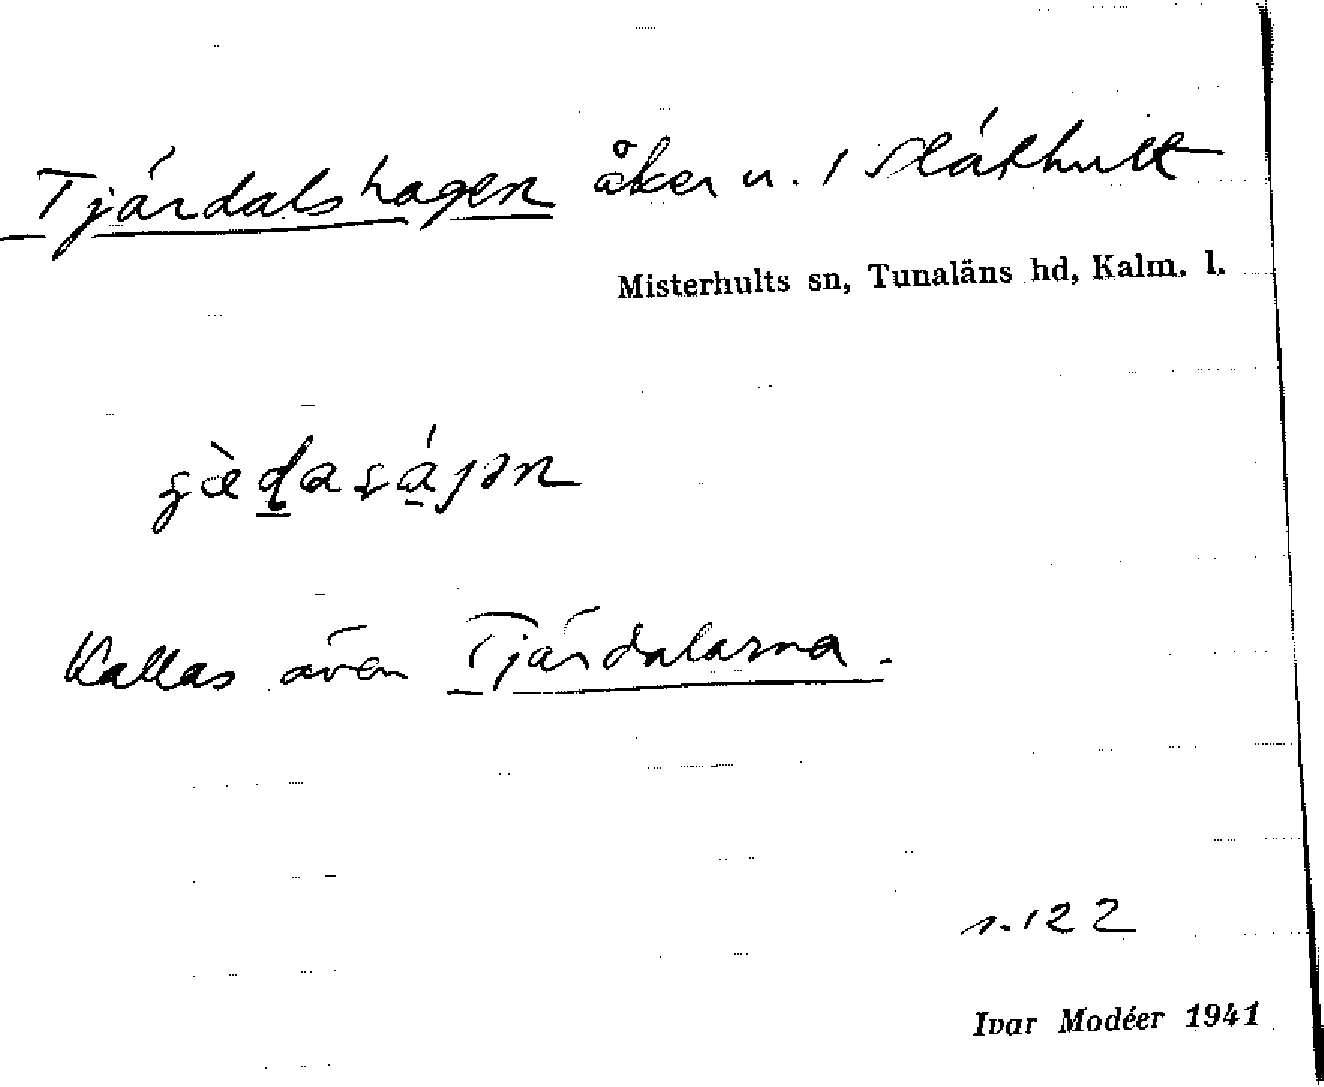 Tjärdalshagen åker u. 1 Släthult
Misterhults sn, Tunaläns hd, Kalm. l.
Kallas även Tjärdalarna.
s. 122
Ivar Modéer 1941